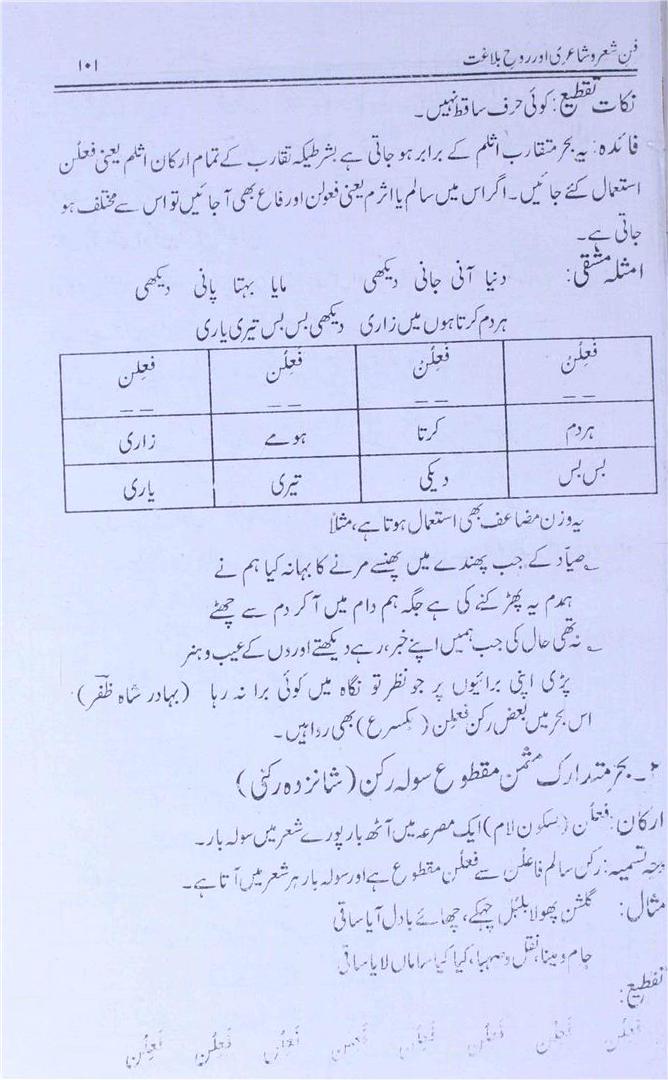 فن شعر و شاعری اور روح بلاغت ۱۰۱
نکات تقطیع: کوئی حرف ساقط نہیں۔
فائدہ: یہ بحر متقارب اثلم کے برابر ہو جاتی ہے بشرطیکہ تقارب کے تمام ارکان اثلم یعنی فعلن
استعمال کئے جائیں۔ اگر اس میں سالم یا اثرم یعنی فعولن اور فاع بھی آ جائیں تو اس سے مختلف ہو
جاتی ہے۔
امثلہ مشقی: دنیا آنی جانی دیکھی مایا بہتا پانی دیکھی
ہر دم کرتا ہوں میں زاری دیکھی بس بس تیری یاری
فَعلُن فَعلُن فَعلُن فَعلن
_ _ _ _ _ _ _ _
ہردم کرتا ہومے زاری
بس بس دیکی تیری یاری
یہ وزن مضاعف بھی استعمال ہوتا ہے، مثلاً
؎ صیاد کے جب پھندے میں پھنسے مرنے کا بہانہ کیا ہم نے
ہمدم یہ پھڑکنے کی ہے جگہ ہم دام میں آ کر دم سے چھٹے
؎ نہ تھی حال کی جب ہمیں اپنے خبر، رہے دیکھتے اوردں کے عیب و ہنر
پڑی اپنی برائیوں پر جو نظر تو نگاہ میں کوئی برا نہ رہا (بہادر شاہ ظفر)
اس بحر میں بعض رکن فعلن (بکسر ع) بھی روا ہیں۔
۲۔ بحر متدارک مثمن مقطوع سولہ رکن (شانزدہ رکنی)
ارکان: فعلُن (بسکون لام) ایک مصرعہ میں آٹھ بار پورے شعر میں سولہ بار۔
وجہ تسمیہ: رکن سالم فاعلُن سے فعلُن مقطوع ہے اور سولہ بار ہر شعر میں آتا ہے۔
مثال: گلشن پھولا بلبل چہکے، چھائے بادل آیا ساقی
جام و مینا، نقل و صہبا، کیا کیا ساماں لایا ساقی
تقطیع:
فَعلُن فَعلُن فَعلُن فَعلُن فَعلُن فَعلُن فَعلُن فَعلُن